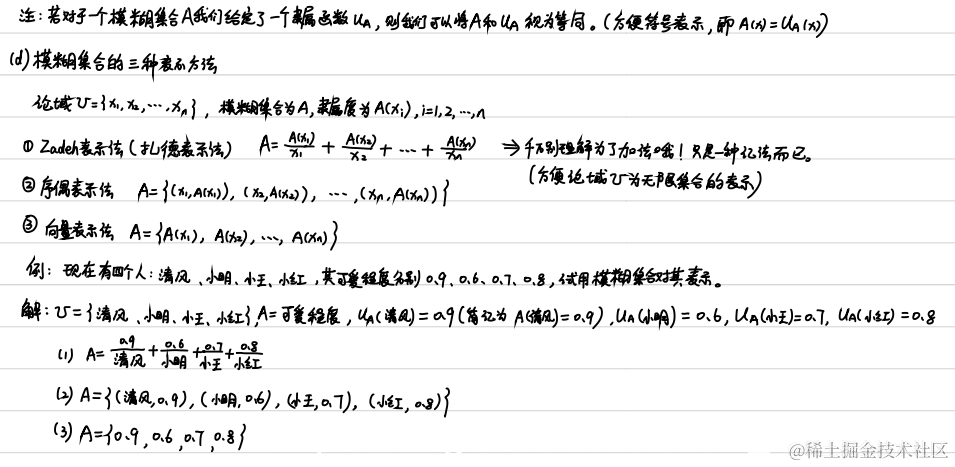 注：若对于一个模糊集合A我们给定了一个隶属函数 u_A，则我们可以将A和 u_A 视为等同。（方便符号表示，即 A(x)=u_A(x)）
(d) 模糊集合的三种表示方法
论域 U={x₁, x₂, ···, xₙ}，模糊集合为A，隶属度为 A(xᵢ), i=1, 2, ···, n
① Zadeh表示法（扎德表示法） A = A(x₁)/x₁ + A(x₂)/x₂ + ··· + A(xₙ)/xₙ ⇒ 千万别理解为了加法哦！只是一种记法而已。
（方便论域U为无限集合的表示）
② 序偶表示法 A={(x₁, A(x₁)), (x₂, A(x₂)), ···, (xₙ, A(xₙ))}
③ 向量表示法 A={A(x₁), A(x₂), ···, A(xₙ)}
例：现在有四个人：清风、小明、小王、小红，其可爱程度分别 0.9、0.6、0.7、0.8，试用模糊集合对其表示。
解：U={清风、小明、小王、小红}，A=可爱程度，u_A(清风)=0.9（简记为 A(清风)=0.9），u_A(小明)=0.6，u_A(小王)=0.7，u_A(小红)=0.8
(1) A = 0.9/清风 + 0.6/小明 + 0.7/小王 + 0.8/小红
(2) A={(清风, 0.9), (小明, 0.6), (小王, 0.7), (小红, 0.8)}
(3) A={0.9, 0.6, 0.7, 0.8}
@稀土掘金技术社区